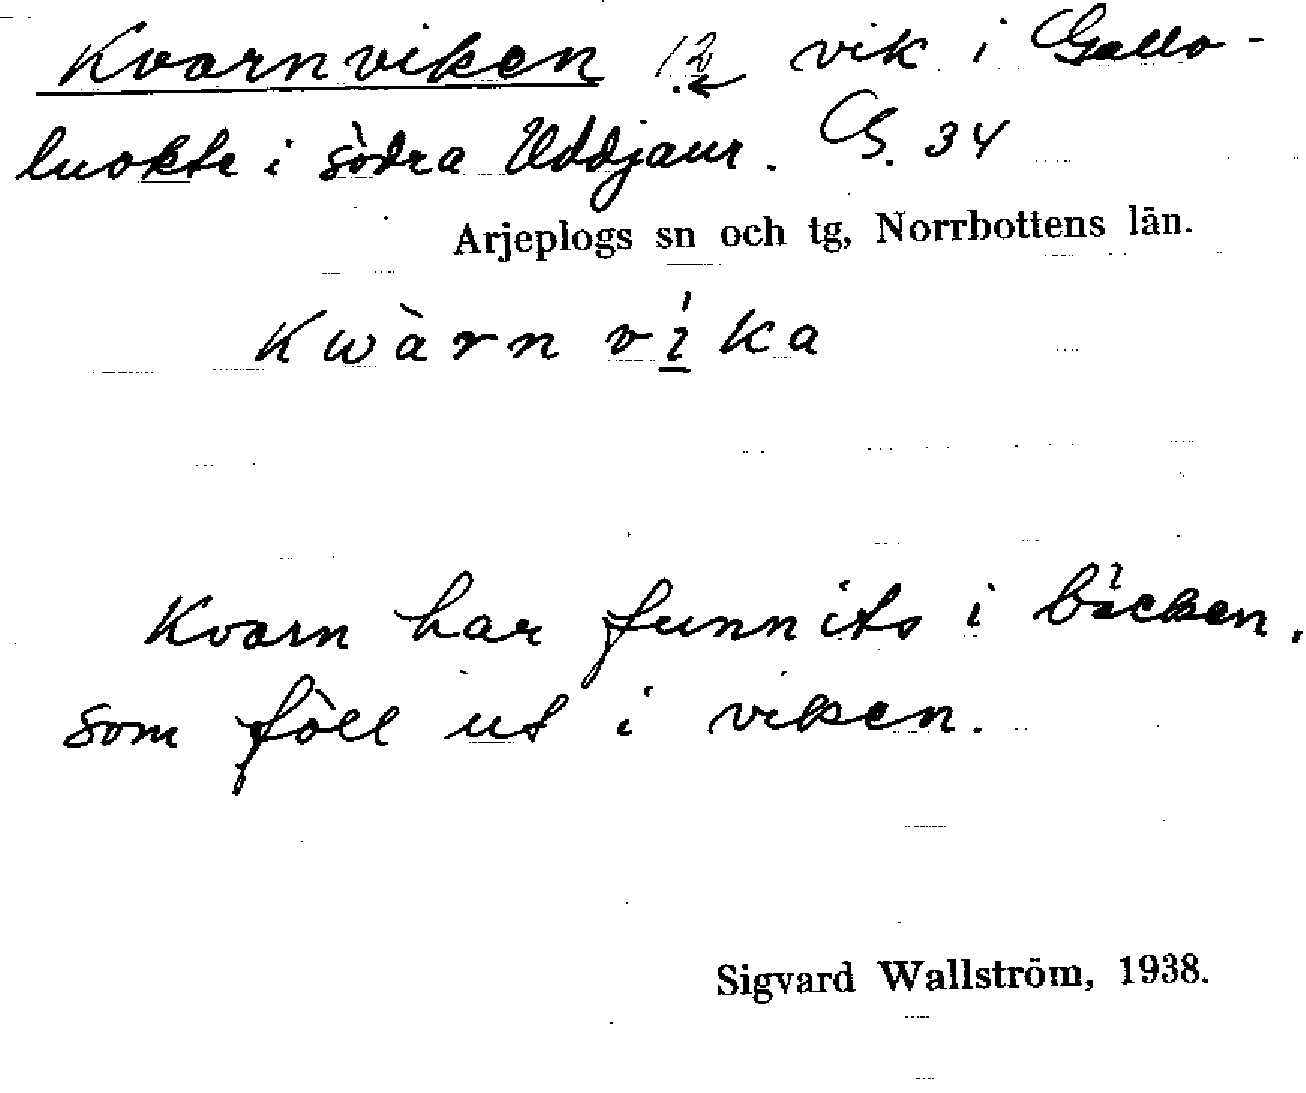 Kvarnviken 12 vik i Gallo-
luokte i södra Uddjaur. G. 34
Arjeplogs sn och tg, Norrbottens län.
Kwàrn víka
Kvarn har funnits i bäcken,
som föll ut i viken.
Sigvard Wallström, 1938.